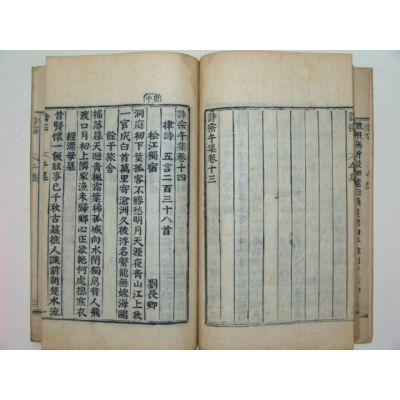 詩宗午集卷十三
詩宗午集卷十四
律詩 五言二百三十八首
松江獨宿 劉長卿
洞庭初下葉孤客不勝愁明月天涯夜青山江上秋
一官成白首萬里寄滄洲久被浮名繫能無媿海鷗
餘干旅舍
搖落暮天迥青楓霜葉稀孤城向水閉獨鳥背人飛
渡口月初上鄰家漁未歸鄉心正欲絕何處擣寒衣
經漂母墓
昔賢懷一飯茲事已千秋古墓樵人識前朝楚水流